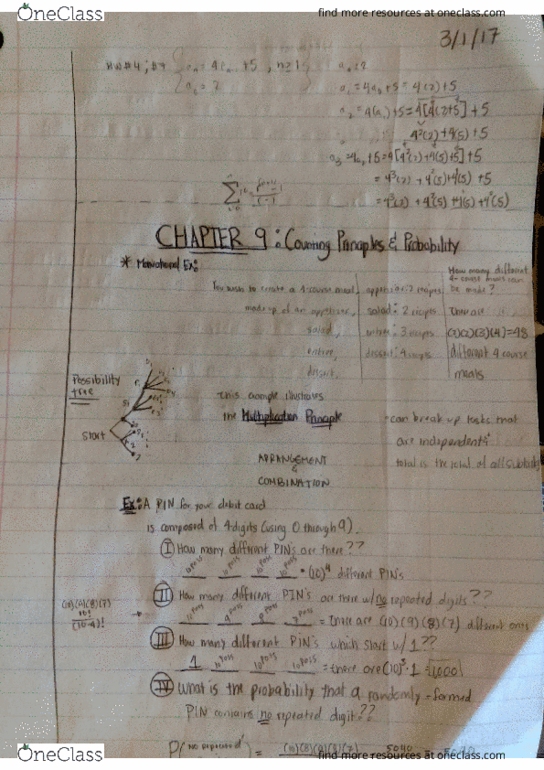 OneClass
find more resources at oneclass.com
3/1/17
HW#4; 87 { aₙ = 4aₙ₋₁ + 5, n≥1
a₀ = 2
a₁ = 4a₀ + 5 = 4(2)+5
a₂ = 4(a₁)+5 = 4[4(2)+5]+5
4²(2)+4(5)+5
= 4³(2) + 4²(5)+4(5) +5
CHAPTER 9: Counting Principles & Probability
* Motivational Ex:
You wish to create a 4-course meal
made up of an appetizer,
salad,
entree,
dessert.
appetizer: 2 recipes
salad: 2 recipes
entree: 3 recipes
dessert: 4 recipes
How many different
4-course meals can
be made?
There are
(2)(2)(3)(4)=48
different 4 course
meals
Possibility
tree
START
This example illustrates
the Multiplication Principle
• can break up tasks that
are independent
total is the total of all subtasks
ARRANGEMENT
&
COMBINATION
Ex: A PIN for your debit card
is composed of 4 digits (using 0 through 9).
I How many different PIN's are there??
10 poss 10 poss 10 poss 10 poss = (10)⁴ different PINs
II How many different PIN's are there w/ no repeated digits??
10 poss 9 poss 8 poss 7 poss = there are (10)(9)(8)(7) different ones
(10)(9)(8)(7)
10!
(10-4)!
III How many different PIN's which start w/ 1??
1 10 poss 10 poss 10 poss = there are (10)³·1 = 1000
IV What is the probability that a randomly-formed
PIN contains no repeated digit??
P("no repeated") = (10)(9)(8)(7) 5040
OneClass
find more resources at oneclass.com